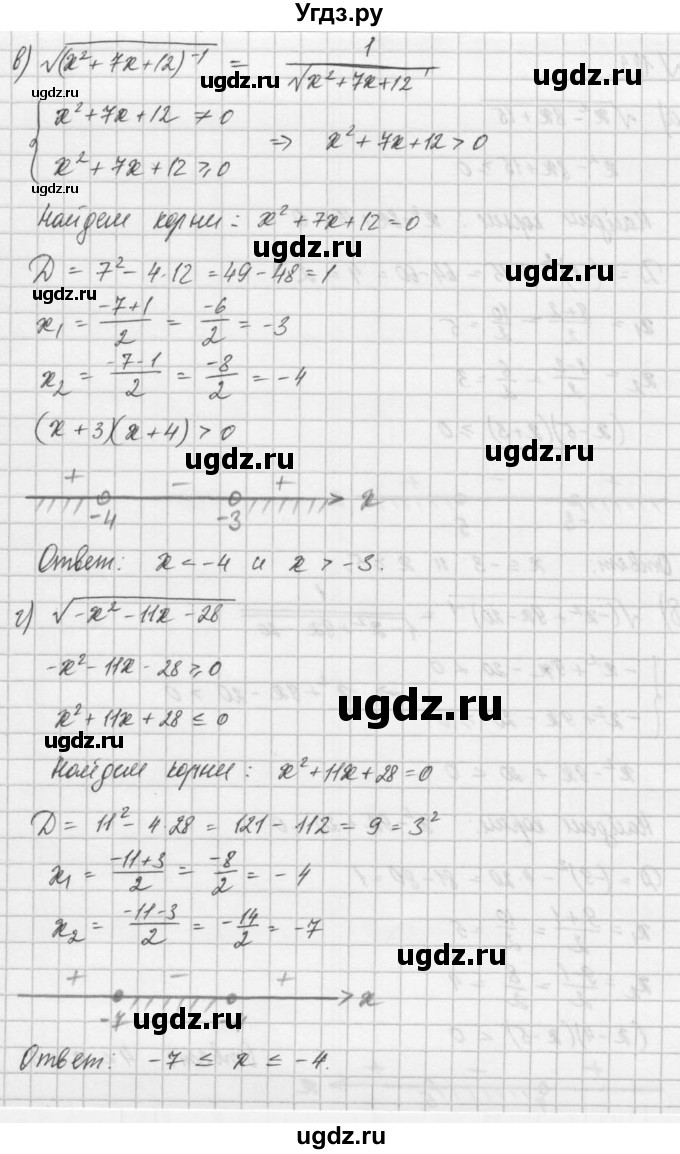 Угдз.ру
в) √(x²+7x+12)⁻¹ = 1/√(x²+7x+12)
ugdz.ru
ugdz.ru
{ x²+7x+12 ≠ 0
x²+7x+12 ≥ 0 ⇒ x²+7x+12 > 0
ugdz.ru
ugdz.ru
Найдем корни: x²+7x+12=0
ugdz.ru
D = 7² - 4·12 = 49 - 48 = 1
ugdz.ru
ugdz.ru
x₁ = (-7+1)/2 = -6/2 = -3
x₂ = (-7-1)/2 = -8/2 = -4
ugdz.ru
(x+3)(x+4) > 0
ugdz.ru
ugdz.ru
+ - +
-4 -3 x
ugdz.ru
Ответ: x < -4 и x > -3.
г) √(-x²-11x-28)
ugdz.ru
-x²-11x-28 ≥ 0
ugdz.ru
x²+11x+28 ≤ 0
ugdz.ru
Найдем корни: x²+11x+28=0
D = 11² - 4·28 = 121 - 112 = 9 = 3²
x₁ = (-11+3)/2 = -8/2 = -4
x₂ = (-11-3)/2 = -14/2 = -7
ugdz.ru
+ - +
-7 x
ugdz.ru
Ответ: -7 ≤ x ≤ -4.
ugdz.ru
ugdz.ru